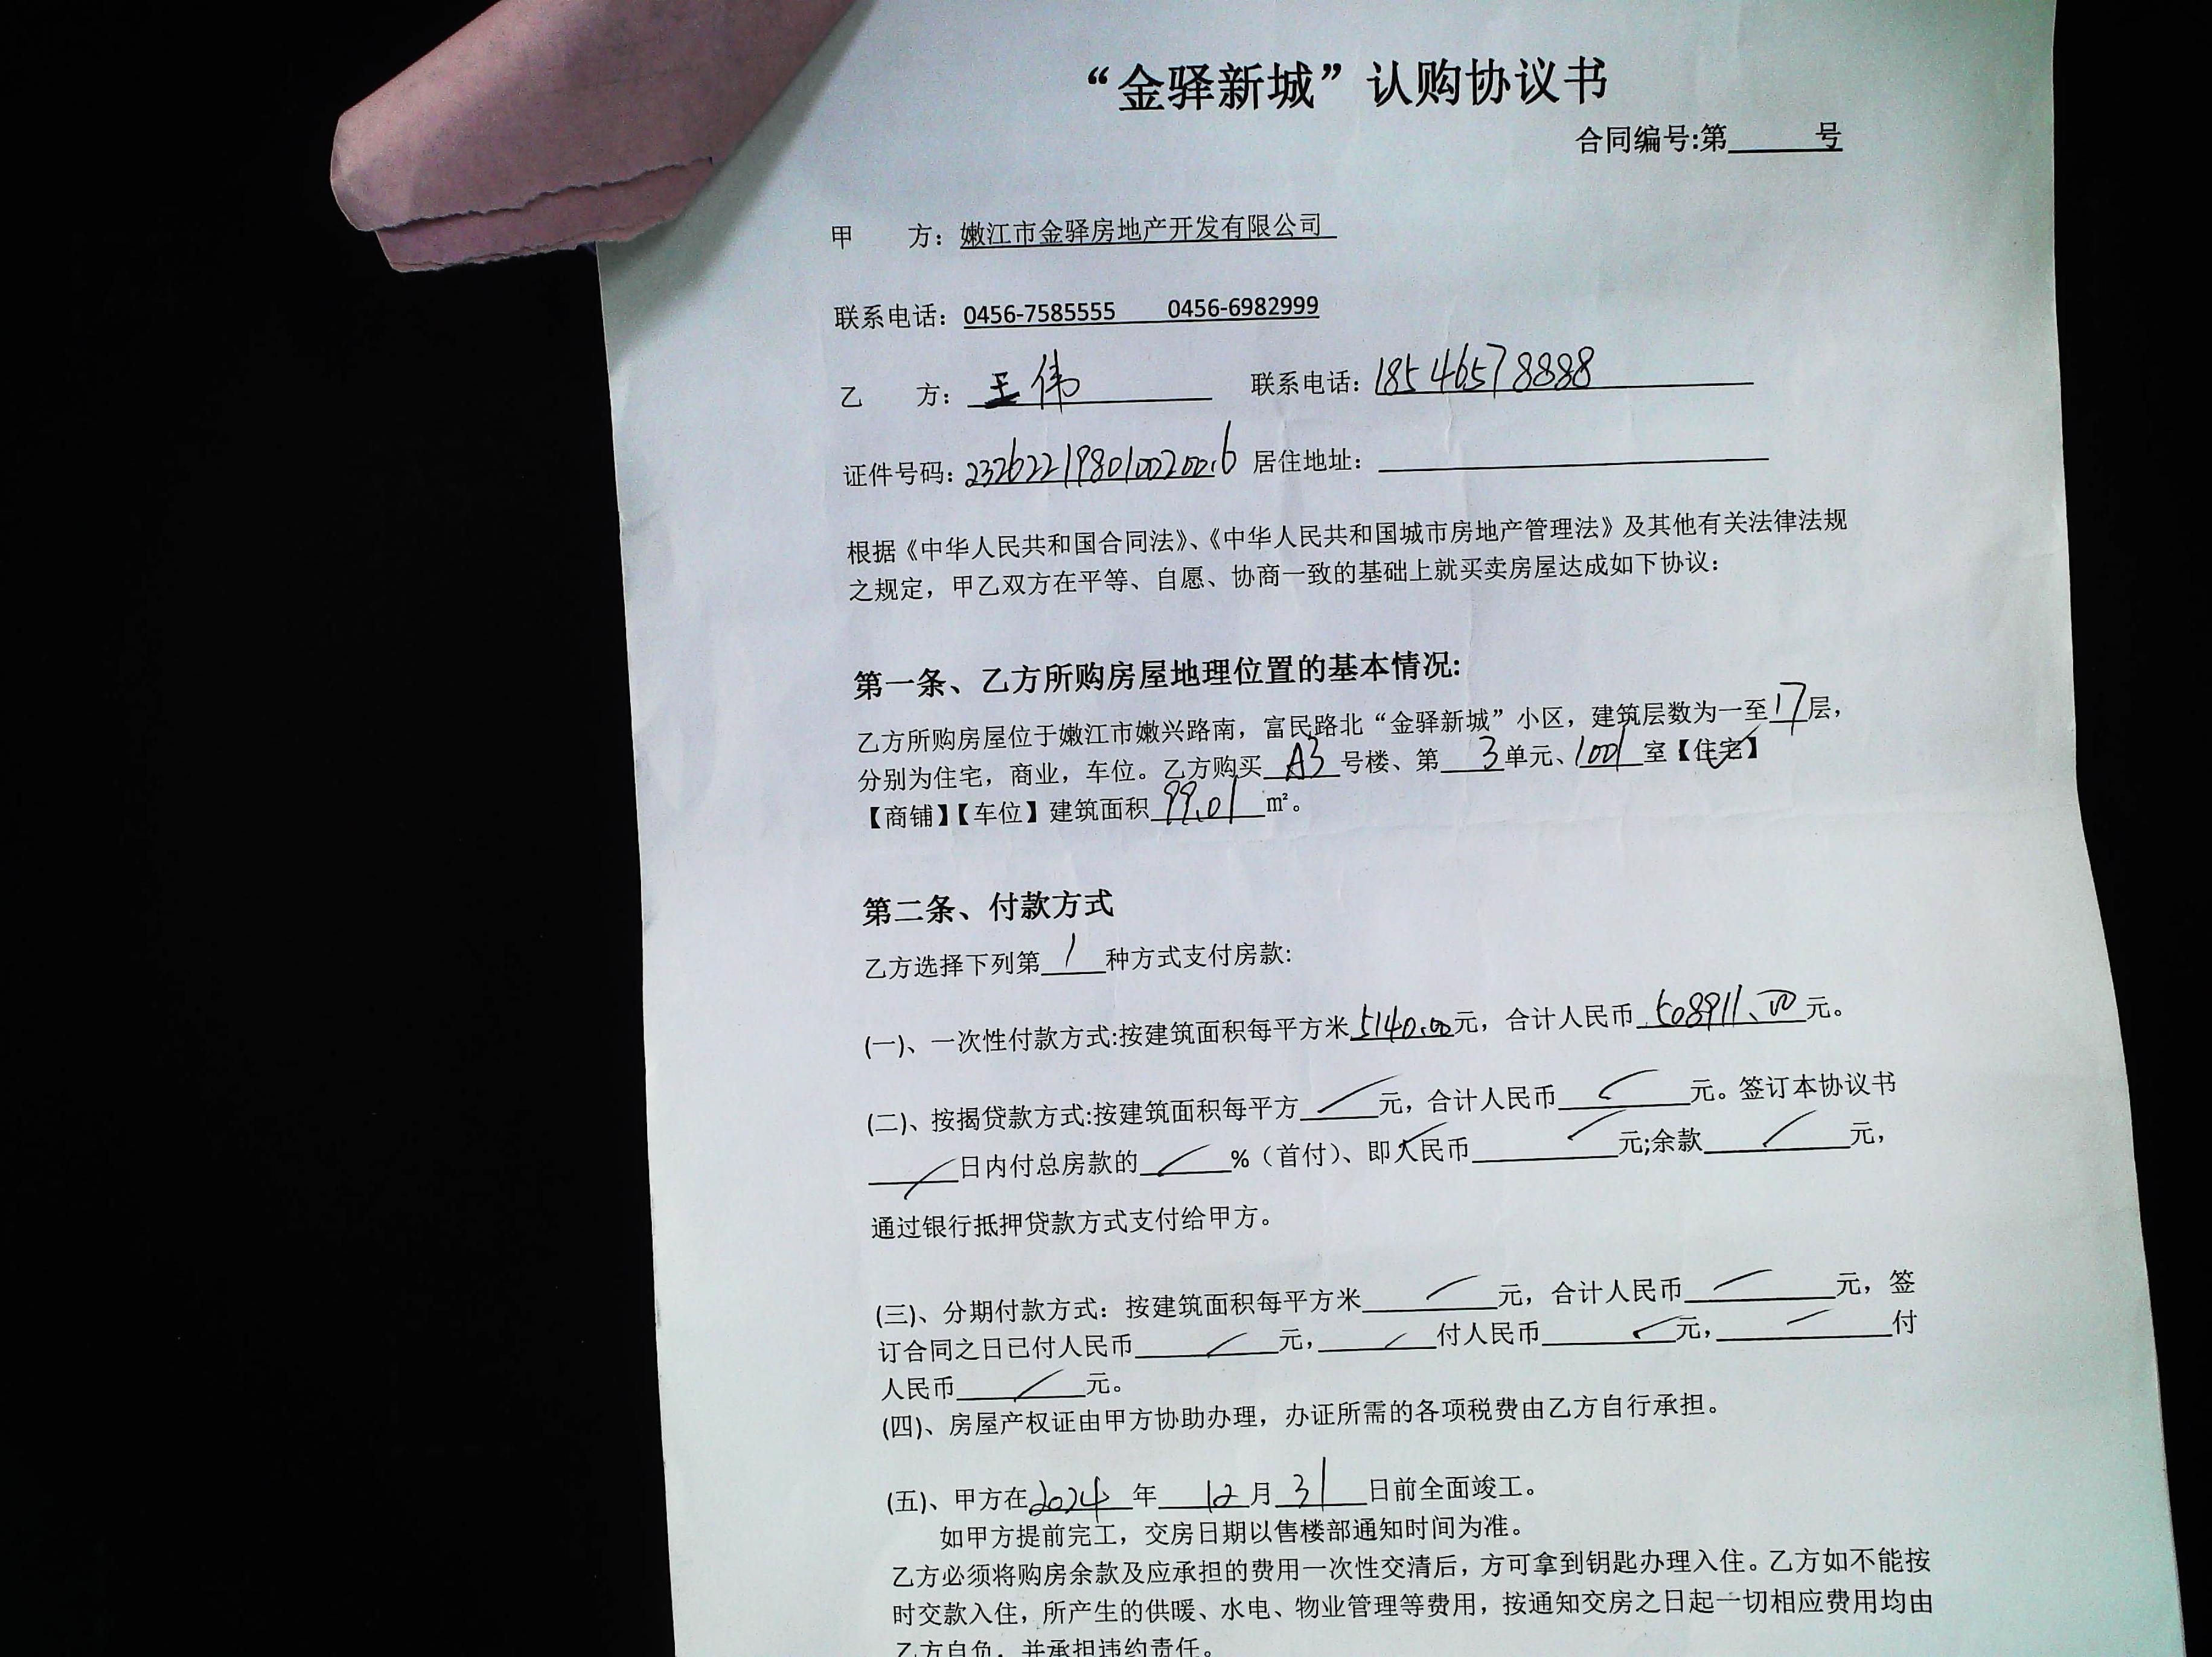 “金驿新城”认购协议书
合同编号:第______号
甲　　方：嫩江市金驿房地产开发有限公司
联系电话：0456-7585555　　0456-6982999
乙　　方：王伟　　联系电话：18546578888
证件号码：232622198010020026 居住地址：
根据《中华人民共和国合同法》、《中华人民共和国城市房地产管理法》及其他有关法律法规
之规定，甲乙双方在平等、自愿、协商一致的基础上就买卖房屋达成如下协议：
第一条、乙方所购房屋地理位置的基本情况:
乙方所购房屋位于嫩江市嫩兴路南，富民路北“金驿新城”小区，建筑层数为一至17层，
分别为住宅，商业，车位。乙方购买 A3 号楼、第 3 单元、1001 室【住宅】
【商铺】【车位】建筑面积 99.01 m²。
第二条、付款方式
乙方选择下列第 1 种方式支付房款:
(一)、一次性付款方式:按建筑面积每平方米 5140.00 元，合计人民币 508911.00 元。
(二)、按揭贷款方式:按建筑面积每平方 / 元，合计人民币 / 元。签订本协议书
/ 日内付总房款的 / %（首付）、即人民币 / 元;余款 / 元，
通过银行抵押贷款方式支付给甲方。
(三)、分期付款方式：按建筑面积每平方米 / 元，合计人民币 / 元，签
订合同之日已付人民币 / 元， / 付人民币 / 元， / 付
人民币 / 元。
(四)、房屋产权证由甲方协助办理，办证所需的各项税费由乙方自行承担。
(五)、甲方在 2024 年 12 月 31 日前全面竣工。
如甲方提前完工，交房日期以售楼部通知时间为准。
乙方必须将购房余款及应承担的费用一次性交清后，方可拿到钥匙办理入住。乙方如不能按
时交款入住，所产生的供暖、水电、物业管理等费用，按通知交房之日起一切相应费用均由
乙方自负，并承担违约责任。